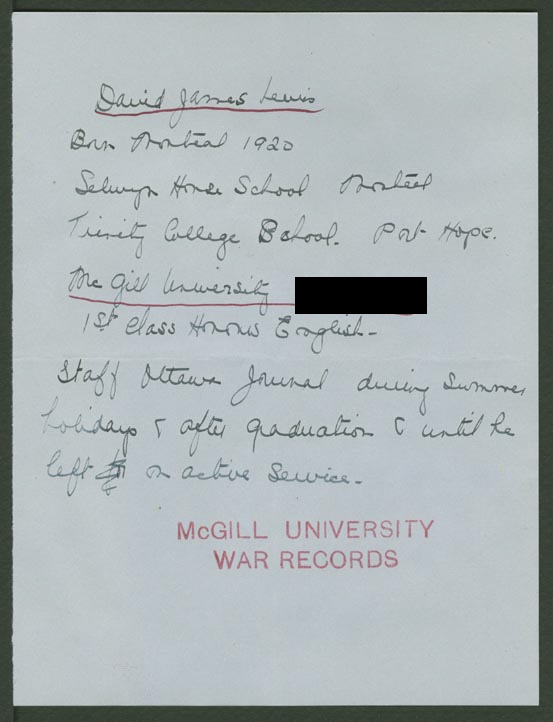 David James Lewis
Born Montreal 1920
Selwyn House School Montreal
Trinity College School. Port Hope.
McGill University
1st Class Honours English -
Staff Ottawa Journal during Summer
holidays & after graduation & until he
left on active Service.
McGILL UNIVERSITY
WAR RECORDS